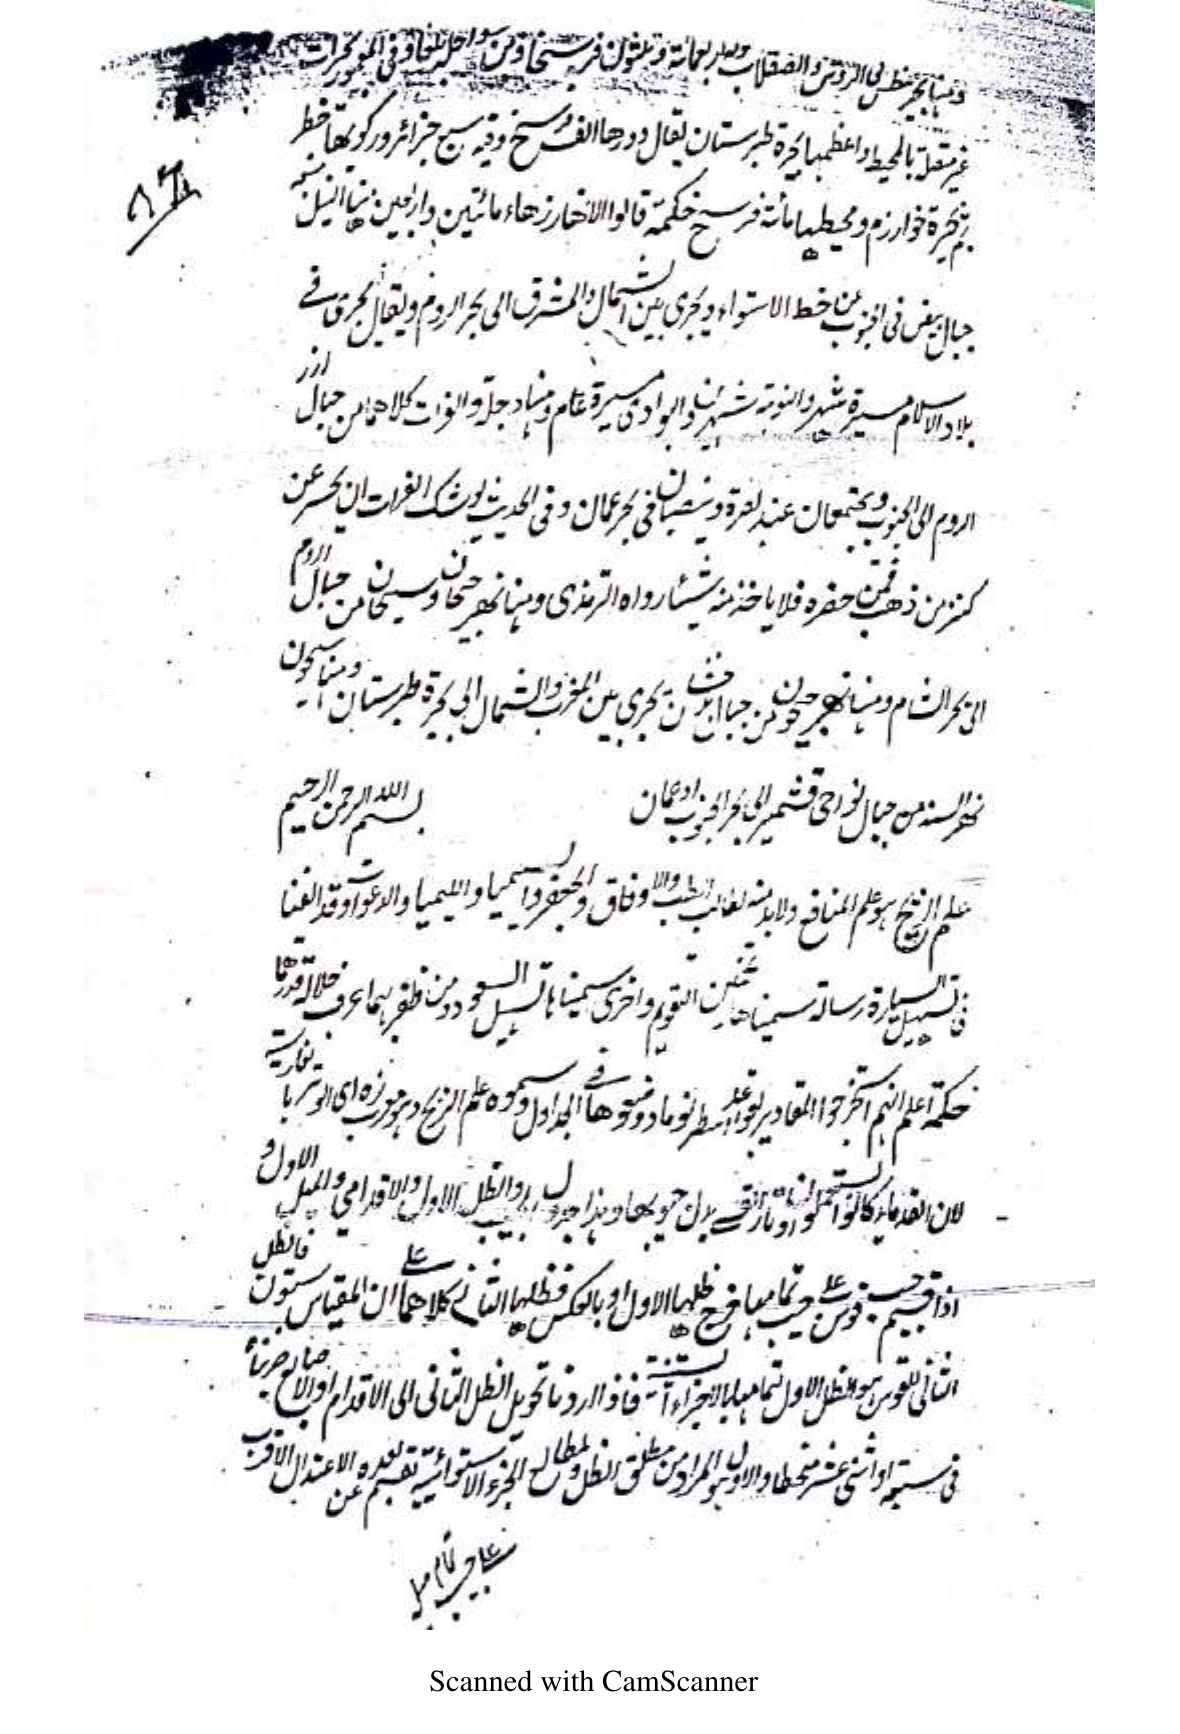 ومنها بحر بنطس لى الروس والصقلاب وثلثون فرسخا ومن سواحله بلغار وفى المعمور بحيرات
غير متصلة بالمحيط واعظمها بحيرة طبرستان يقال دورها الف فرسخ وفيه سبع جزائر وركوبها خطر
ثم بحيرة خوارزم ومحيطها مائة فرسخ حكمة قالوا الانهار زهاء مائتين واربعين منها النيل منبعه
جبال بيض فى الجنوب عن خط الاستواء ويجرى بين الشمال والمشرق الى بحر الروم ويقال يجرى فى
بلاد الاسلام مسيرة شهر والنوبة شهرين والبوادى مسيرة عام ومنها دجلة والفرات كلاهما من جبال
الروم الى الجنوب ويجتمعان عند بصرة وينصبان فى بحر عمان وفى الحديث يوشك الفرات ان يحسر عن
كنز من ذهب فمن حضره فلا ياخذ منه شيئا رواه الترمذى ومنها نهر جيحان وسيحان من جبال الروم
الى بحر الشام ومنها نهر جيحون من جبال بدخشان يجرى بين المغرب والشمال الى بحيرة طبرستان ومنها سيحون
نهر السند من جبال نواحى قشمير الى بحر الجنوب او عمان بسم الله الرحمن الرحيم
علم الزيج هو علم المنافع ولابد منه لغالب الطب والاوفاق والجفر والسيميا والليميا والدعوات وقد الفنا
فى تسهيل السيارة رسالة سميناها تخمين التقويم واخرى سميناها تسهيل السعود ومن ظفر بهما عرف جلالة قدرهما
حكمة اعلم انهم استخرجوا المقادير بقواعد ووضعوها فى الجداول وسموه علم الزيج وهو معرب زه اى الوتر بالفارسية
لان القدماء كانوا يستعملون اوتار القسى بدل جيوبها وهذا جدول الجيب والظل الاول والاقدامى والميل الاول و
اذا قسم جيب قوس على جيب تمامها خرج ظلها الاول او بالعكس فظلها الثانى كلاهما على ان المقياس ستون فالظل
الثانى للقوس هو الظل الاول لتمامها بالاجزاء الستينية فاذا اردنا تحويل الظل الثانى الى الاقدام او الاصابع ضربناه
فى سبعة او اثنى عشر منحطا والاول هو المراد من مطلق الظل ولمطالع الجزء الاستوائية نقسم بعده عن الاعتدال الاقرب
على جيب تمام ميله